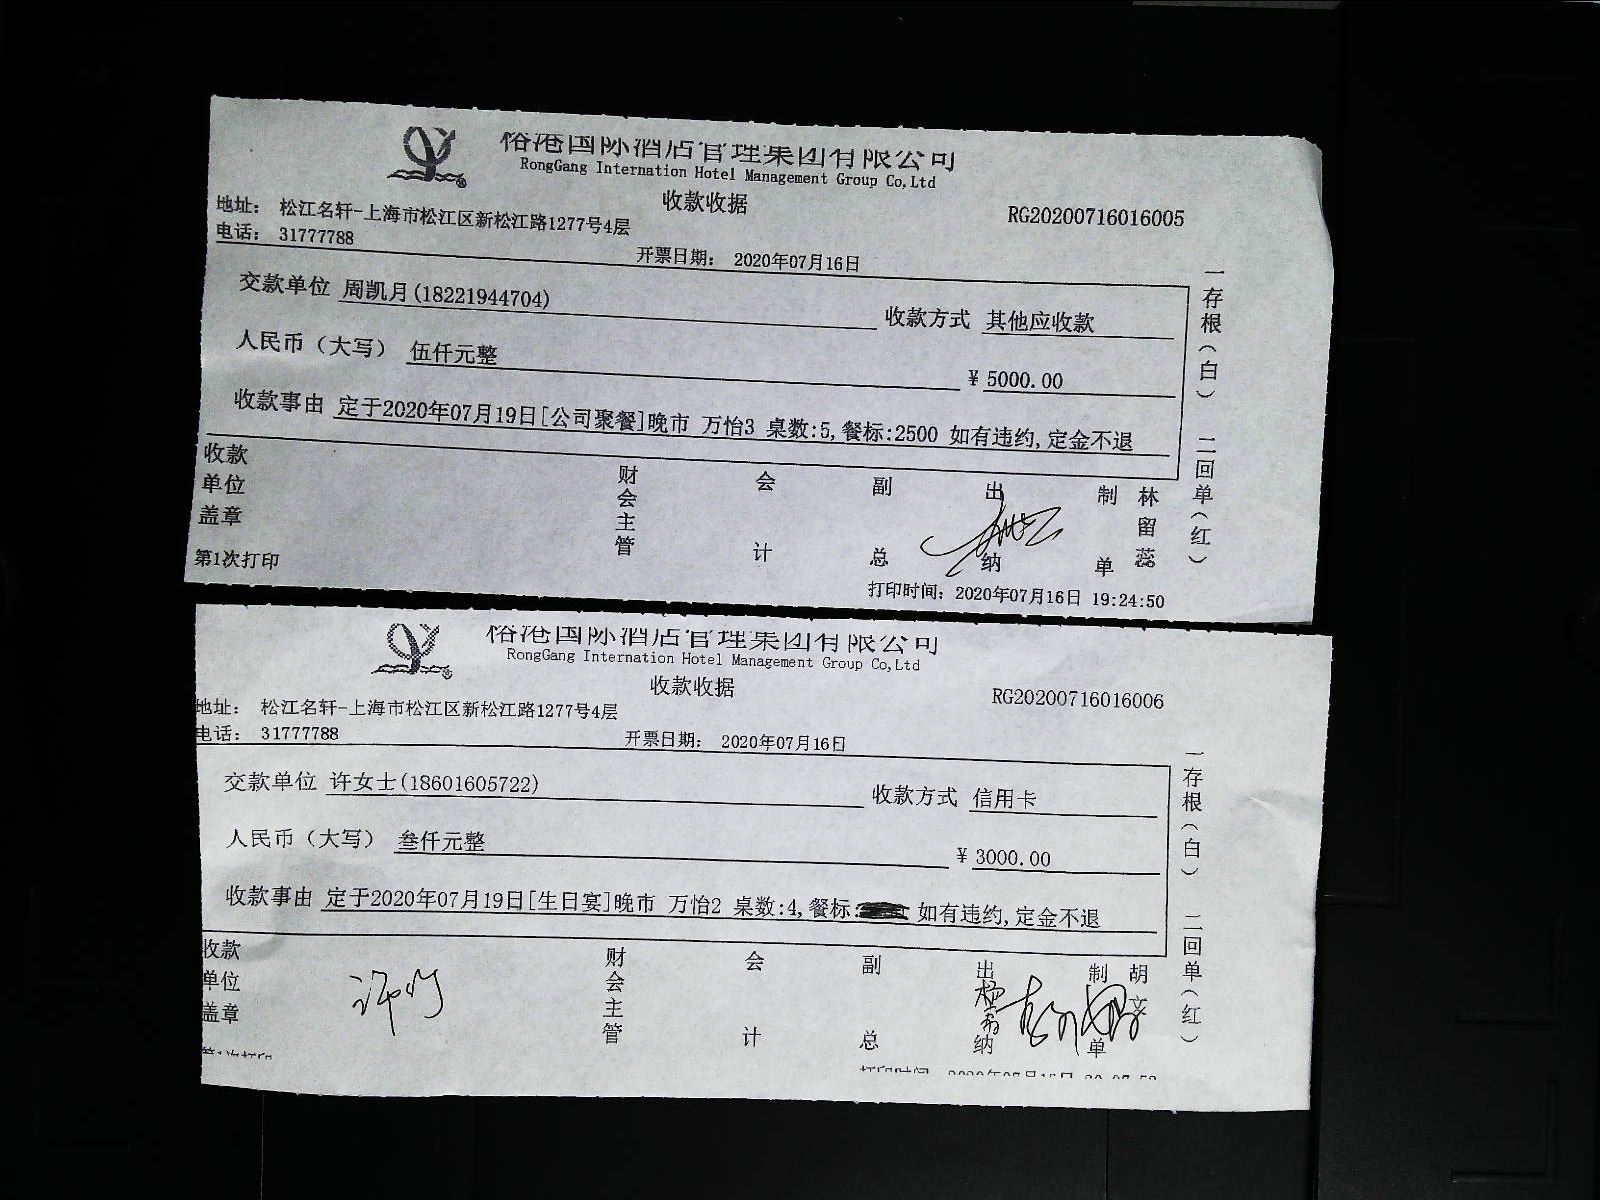 裕港国际酒店管理集团有限公司
RongGang Internation Hotel Management Group Co,Ltd
收款收据
RG20200716016005
地址： 松江名轩-上海市松江区新松江路1277号4层
电话： 31777788
开票日期： 2020年07月16日
交款单位 周凯月(18221944704)
收款方式 其他应收款
人民币（大写） 伍仟元整
¥ 5000.00
收款事由 定于2020年07月19日[公司聚餐]晚市 万怡3 桌数:5,餐标:2500 如有违约,定金不退
一存根（白） 二回单（红）
收款单位盖章
财会主管
会计
副总
出纳
制单
林留蕊
第1次打印
打印时间：2020年07月16日 19:24:50
裕港国际酒店管理集团有限公司
RongGang Internation Hotel Management Group Co,Ltd
收款收据
RG20200716016006
地址： 松江名轩-上海市松江区新松江路1277号4层
电话： 31777788
开票日期： 2020年07月16日
交款单位 许女士(18601605722)
收款方式 信用卡
人民币（大写） 叁仟元整
¥ 3000.00
收款事由 定于2020年07月19日[生日宴]晚市 万怡2 桌数:4,餐标: 如有违约,定金不退
一存根（白） 二回单（红）
收款单位盖章
财会主管
会计
副总
出纳
制单
胡文
第1次打印
打印时间